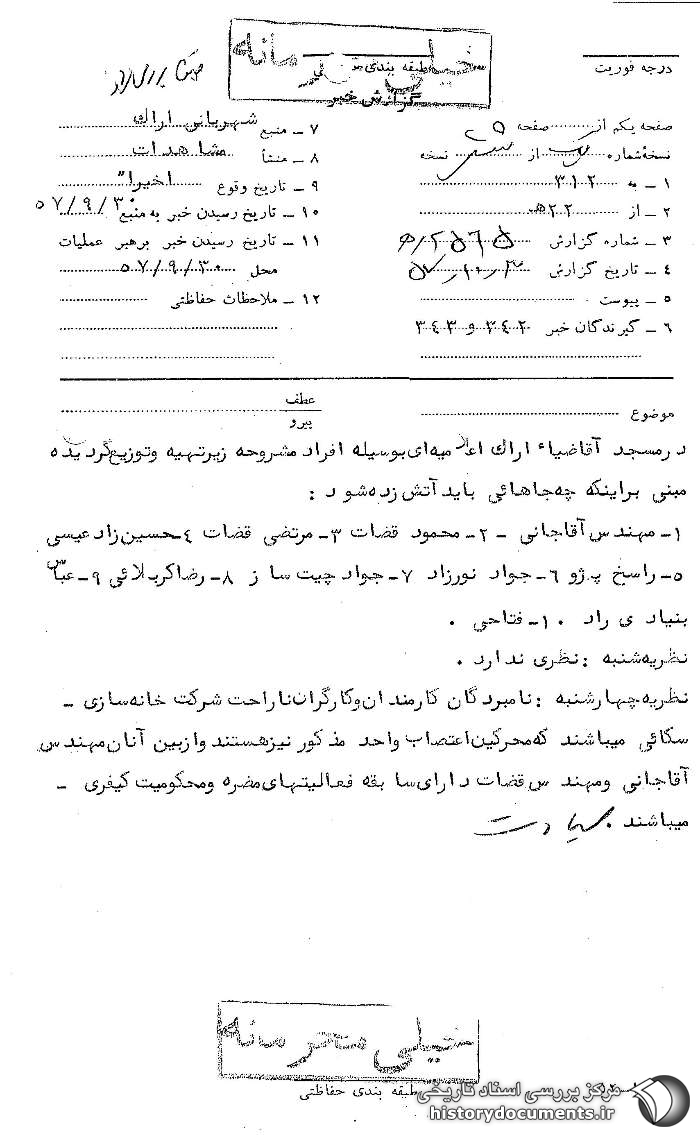 خیلی محرمانه
طبقه بندی
گزارش خبر
درجه فوریت
صفحه یکم از صفحه
نسخه شماره از نسخه
۱ ـ به ۳۱۲
۲ ـ از ۲۲ هـ
۳ ـ شماره گزارش
۴ ـ تاریخ گزارش
۵ ـ پیوست
۶ ـ گیرندگان خبر ۳۴۲ و ۳۴۳
۷ ـ منبع شهربانی اراک
۸ ـ منشأ مشاهدات
۹ ـ تاریخ وقوع اخیرا"
۱۰ ـ تاریخ رسیدن خبر به منبع ۵۷/۹/۳۰
۱۱ ـ تاریخ رسیدن خبر برهبر عملیات
محل ۵۷/۹/۳۰
۱۲ ـ ملاحظات حفاظتی
موضوع
عطف
پیرو
درمسجد آقاضیاء اراک اعلامیه‌ای بوسیله افراد مشروحه زیرتهیه وتوزیع گردیده
مبنی براینکه چه جاهائی باید آتش زده شود :
۱ـ مهندس آقاجانی ـ ۲ـ محمود قضات ۳ـ مرتضی قضات ۴ـ حسین زاد عیسی
۵ـ راسخ پژو ۶ـ جواد نورزاد ۷ـ جواد چیت ساز ۸ـ رضا کربلائی ۹ـ عباس
بنیادی راد ۱۰ـ فتاحی .
نظریه شنبه : نظری ندارد .
نظریه چهارشنبه : نامبردگان کارمندان وکارگران ناراحت شرکت خانه سازی ـ
سکائی میباشند که محرکین اعتصاب واحد مذکور نیزهستند وازبین آنان مهندس
آقاجانی ومهندس قضات دارای سابقه فعالیتهای مضره ومحکومیت کیفری ـ
میباشند .
خیلی محرمانه
طبقه بندی حفاظتی
مرکز بررسی اسناد تاریخی
historydocuments.ir